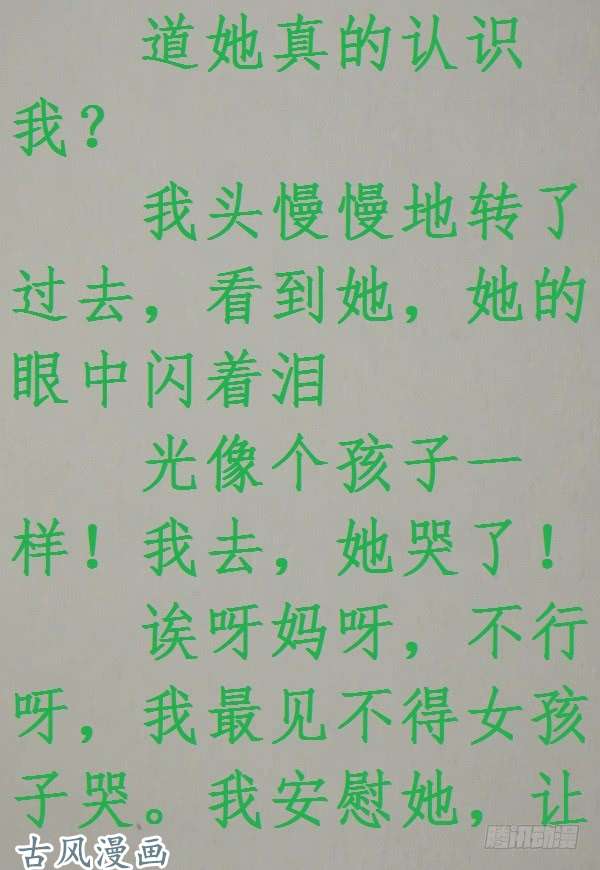 道她真的认识
我？
我头慢慢地转了
过去，看到她，她的
眼中闪着泪
光像个孩子一
样！我去，她哭了！
诶呀妈呀，不行
呀，我最见不得女孩
子哭。我安慰她，让
古风漫画
腾讯动漫